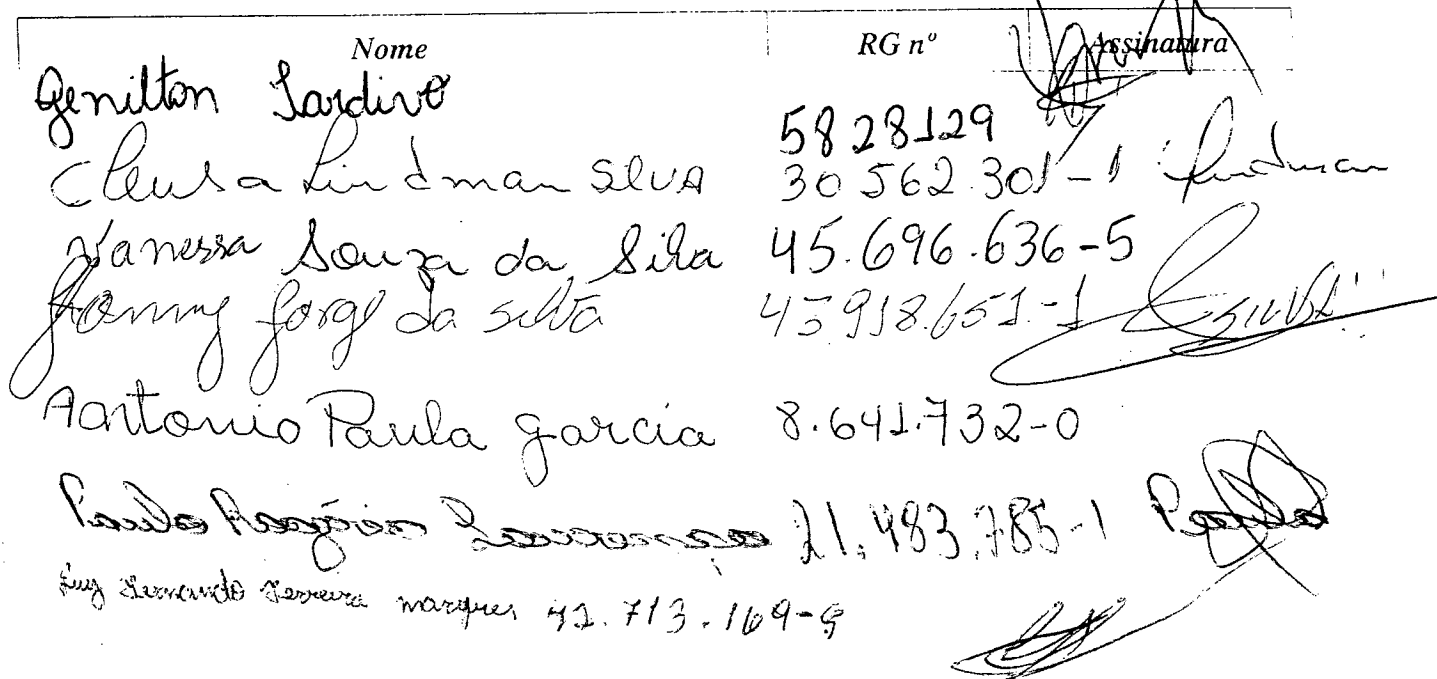 Nome RG nº Assinatura
Genilton Sardivo
5828129
Cleusa Lindman SILVA 30 562.301-1 Lindman
Vanessa Souza da Silva 45.696.636-5
Jonny Jorge da silva 45918.651-1 SILVA
Antonio Paula garcia 8.641.732-0
Paulo Rogério Lourenço 21.483.785-1 Paulo
Luiz Fernando Ferreira marques 42.713.169-9